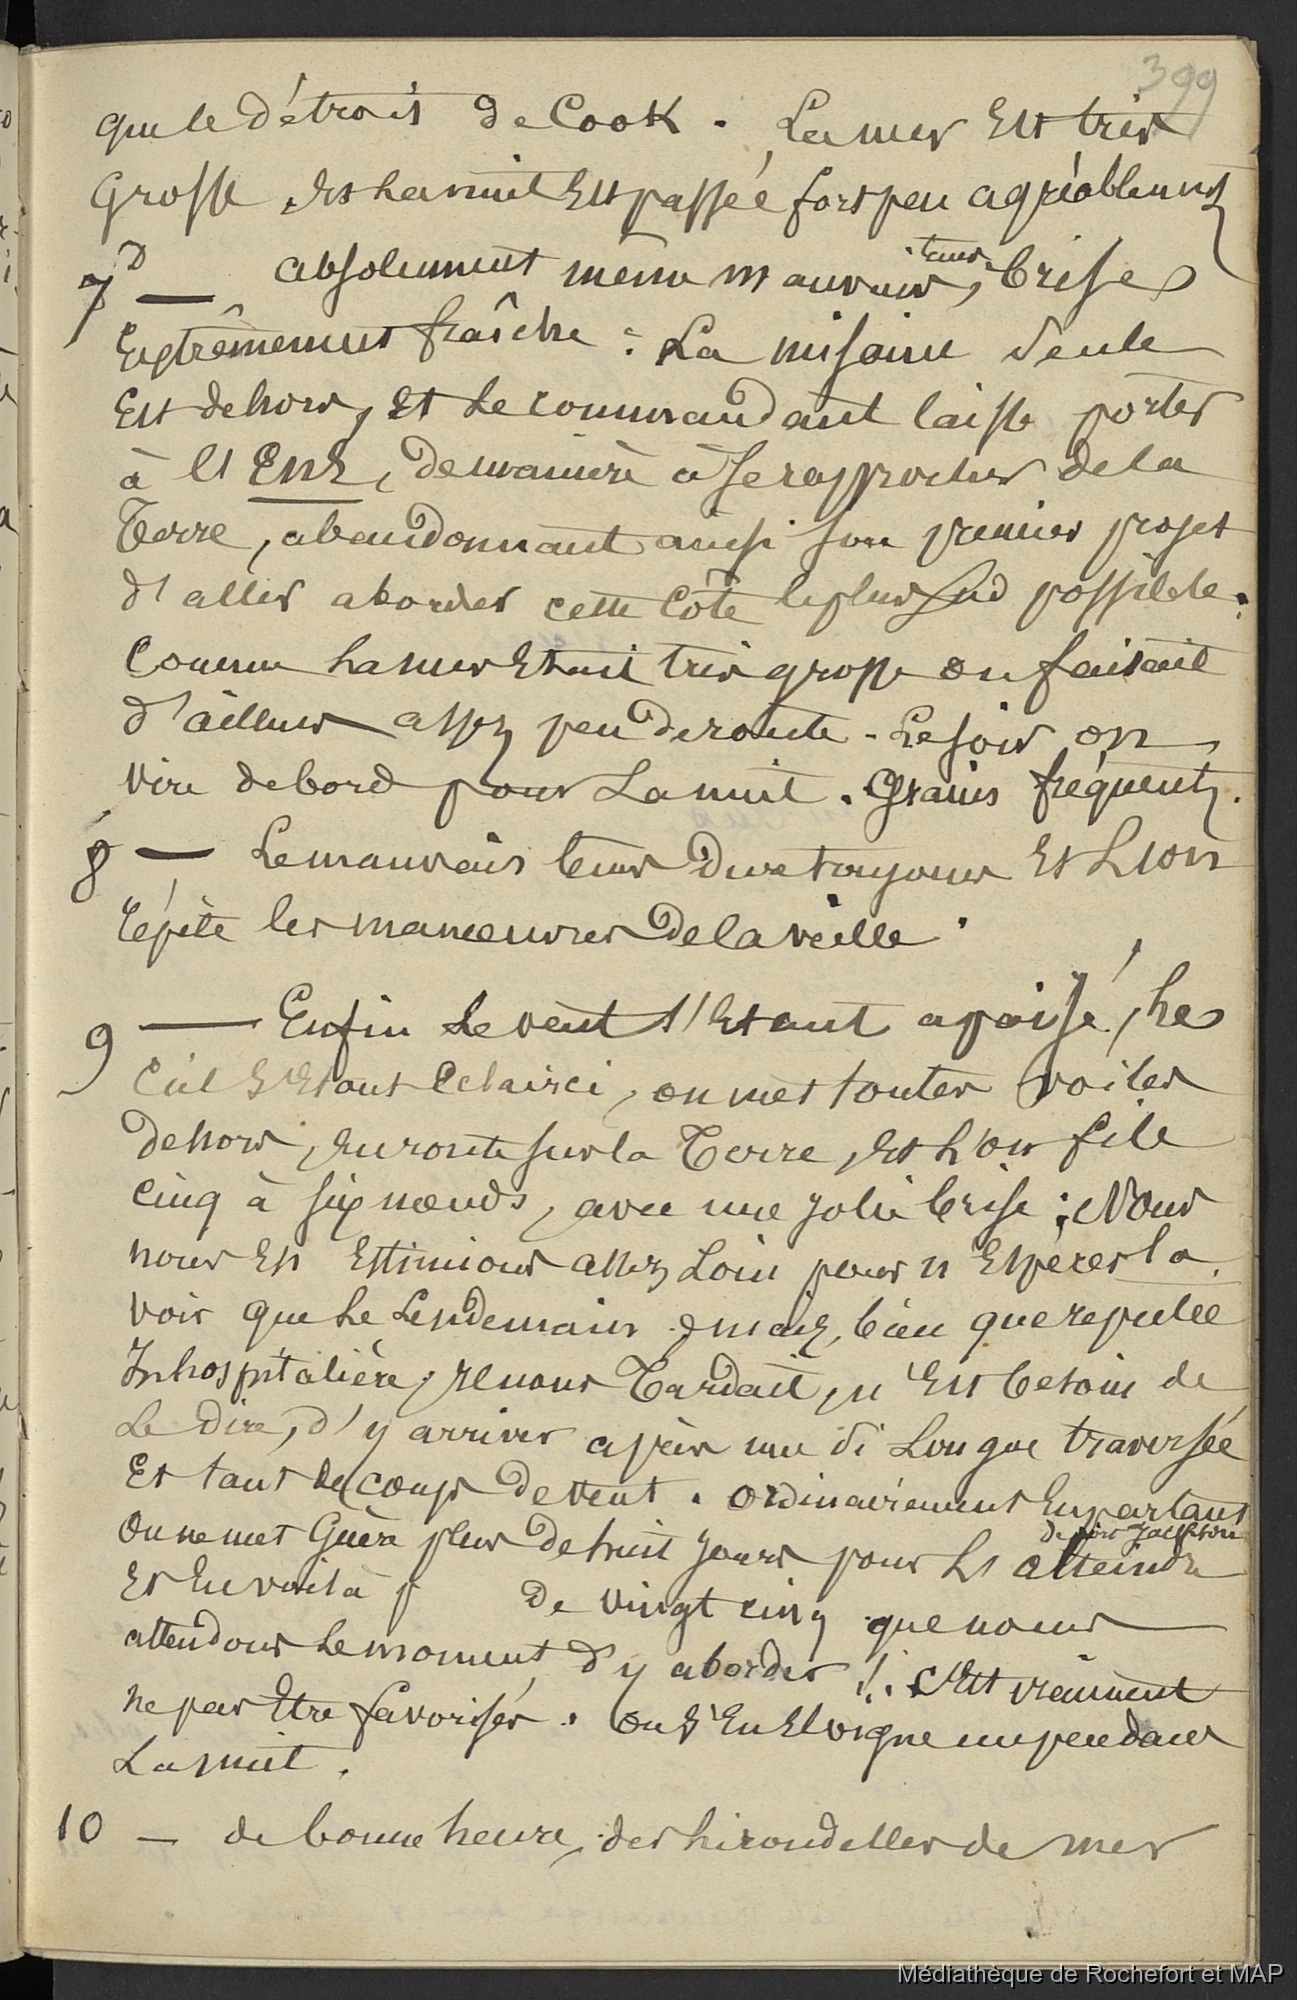 399
que le détroit de Cook. La mer est très
grosse, et la nuit est passée fort peu agréablement
7 D — absolument même mauvais tems, brise
Extrêmement fraîche : La misaine seule
est dehors, et le commandant laisse porter
à l'ENE, de manière à se rapprocher de la
Terre, abandonnant ainsi son premier projet
d'aller aborder cette côte le plus Sud possible.
Comme la mer était très grosse on faisait
d'ailleurs assez peu de route - Le soir on
vire de bord pour La nuit. Grains fréquents.
8 — Le mauvais tems dure toujours et L'on
répète les manœuvres de la veille.
9 — Enfin Le vent s'étant apaisé, le
Ciel s'étant Eclairci, on met toutes voiles
dehors, en route sur la Terre, et L'on file
Cinq à six nœuds, avec une jolie brise ; Nous
nous en estimions assez Loin pour n'espérer la
voir que Le Lendemain ; mais, bien que reputée
Inhospitalière, il nous Tardait, n'est besoin de
Le dire, d'y arriver après une si Longue traversée
Et tant de coups de vent. Ordinairement En partant
de Port Jackson
On ne met Guère plus de huit jours pour L'atteindre
Et en voilà de vingt cinq que nous
attendons Le moment d'y aborder !. C'est vraiment
ne pas Être favorisés. On s'en Eloigne un peu dans
La nuit.
10 — de bonne heure, des hirondelles de mer
Médiathèque de Rochefort et MAP